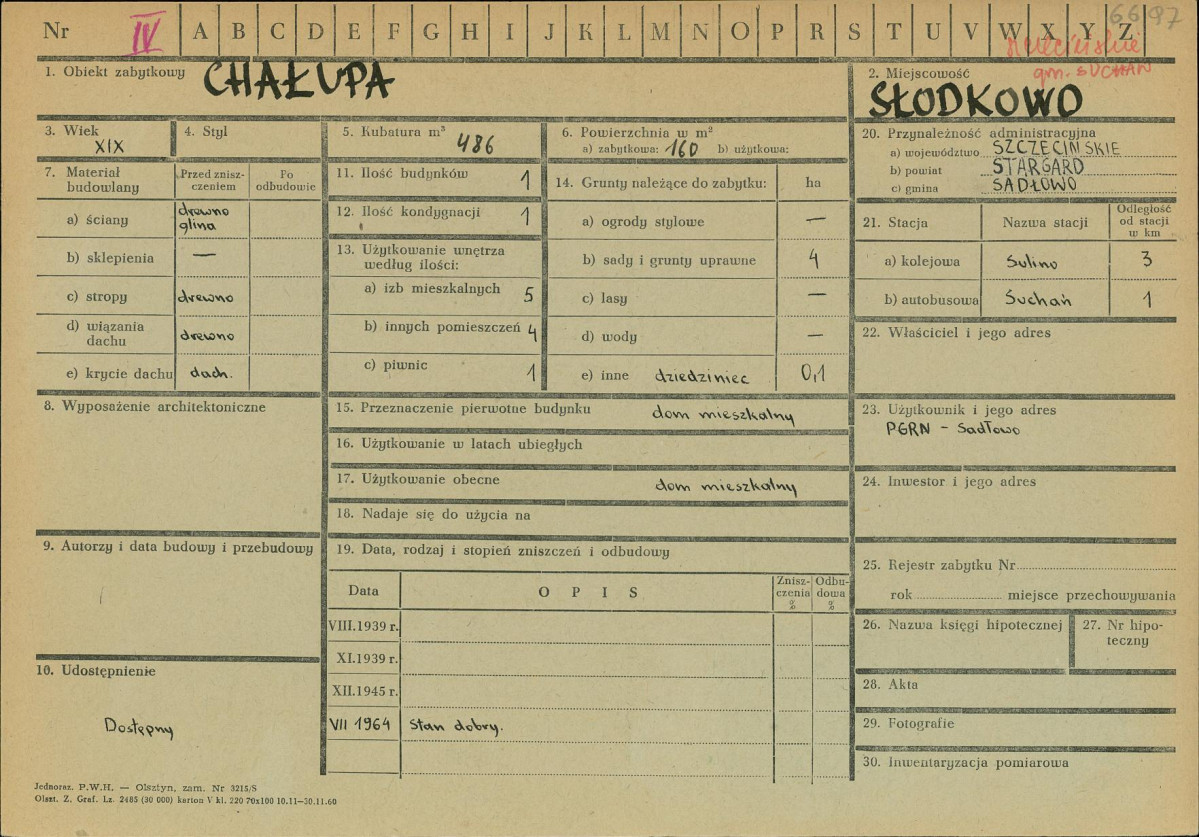 6697
Nr IV A B C D E F G H I J K L M N O P R S T U V W X Y Z
gm. SUCHAŃ
1. Obiekt zabytkowy CHAŁUPA
2. Miejscowość
SŁODKOWO
3. Wiek
XIX
4. Styl
5. Kubatura m³ 486
6. Powierzchnia w m²
a) zabytkowa: 160 b) użytkowa:
7. Materiał budowlany
Przed znisz-
czeniem
Po
odbudowie
a) ściany drewno
glina
b) sklepienia —
c) stropy drewno
d) wiązania
dachu drewno
e) krycie dachu dach.
8. Wyposażenie architektoniczne
9. Autorzy i data budowy i przebudowy
10. Udostępnienie
Dostępny
11. Ilość budynków 1
12. Ilość kondygnacji 1
13. Użytkowanie wnętrza
według ilości:
a) izb mieszkalnych 5
b) innych pomieszczeń 4
c) piwnic 1
14. Grunty należące do zabytku: ha
a) ogrody stylowe —
b) sady i grunty uprawne 4
c) lasy —
d) wody —
e) inne dziedziniec 0,1
15. Przeznaczenie pierwotne budynku dom mieszkalny
16. Użytkowanie w latach ubiegłych
17. Użytkowanie obecne dom mieszkalny
18. Nadaje się do użycia na
19. Data, rodzaj i stopień zniszczeń i odbudowy
Data OPIS
Znisz-
czenia
%
Odbu-
dowa
%
VIII.1939 r.
XI.1939 r.
XII.1945 r.
VII 1964 Stan dobry.
20. Przynależność administracyjna
a) województwo SZCZECIŃSKIE
b) powiat STARGARD
c) gmina SADŁOWO
21. Stacja Nazwa stacji
Odległość
od stacji
w km
a) kolejowa Sulino 3
b) autobusowa Suchań 1
22. Właściciel i jego adres
23. Użytkownik i jego adres
PGRN - Sadłowo
24. Inwestor i jego adres
25. Rejestr zabytku Nr
rok miejsce przechowywania
26. Nazwa księgi hipotecznej
27. Nr hipo-
teczny
28. Akta
29. Fotografie
30. Inwentaryzacja pomiarowa
Jednoraz. P.W.H. — Olsztyn, zam. Nr 3215/S
Olszt. Z. Graf. Lz. 2485 (30 000) karton V kl. 220 70x100 10.11—30.11.60